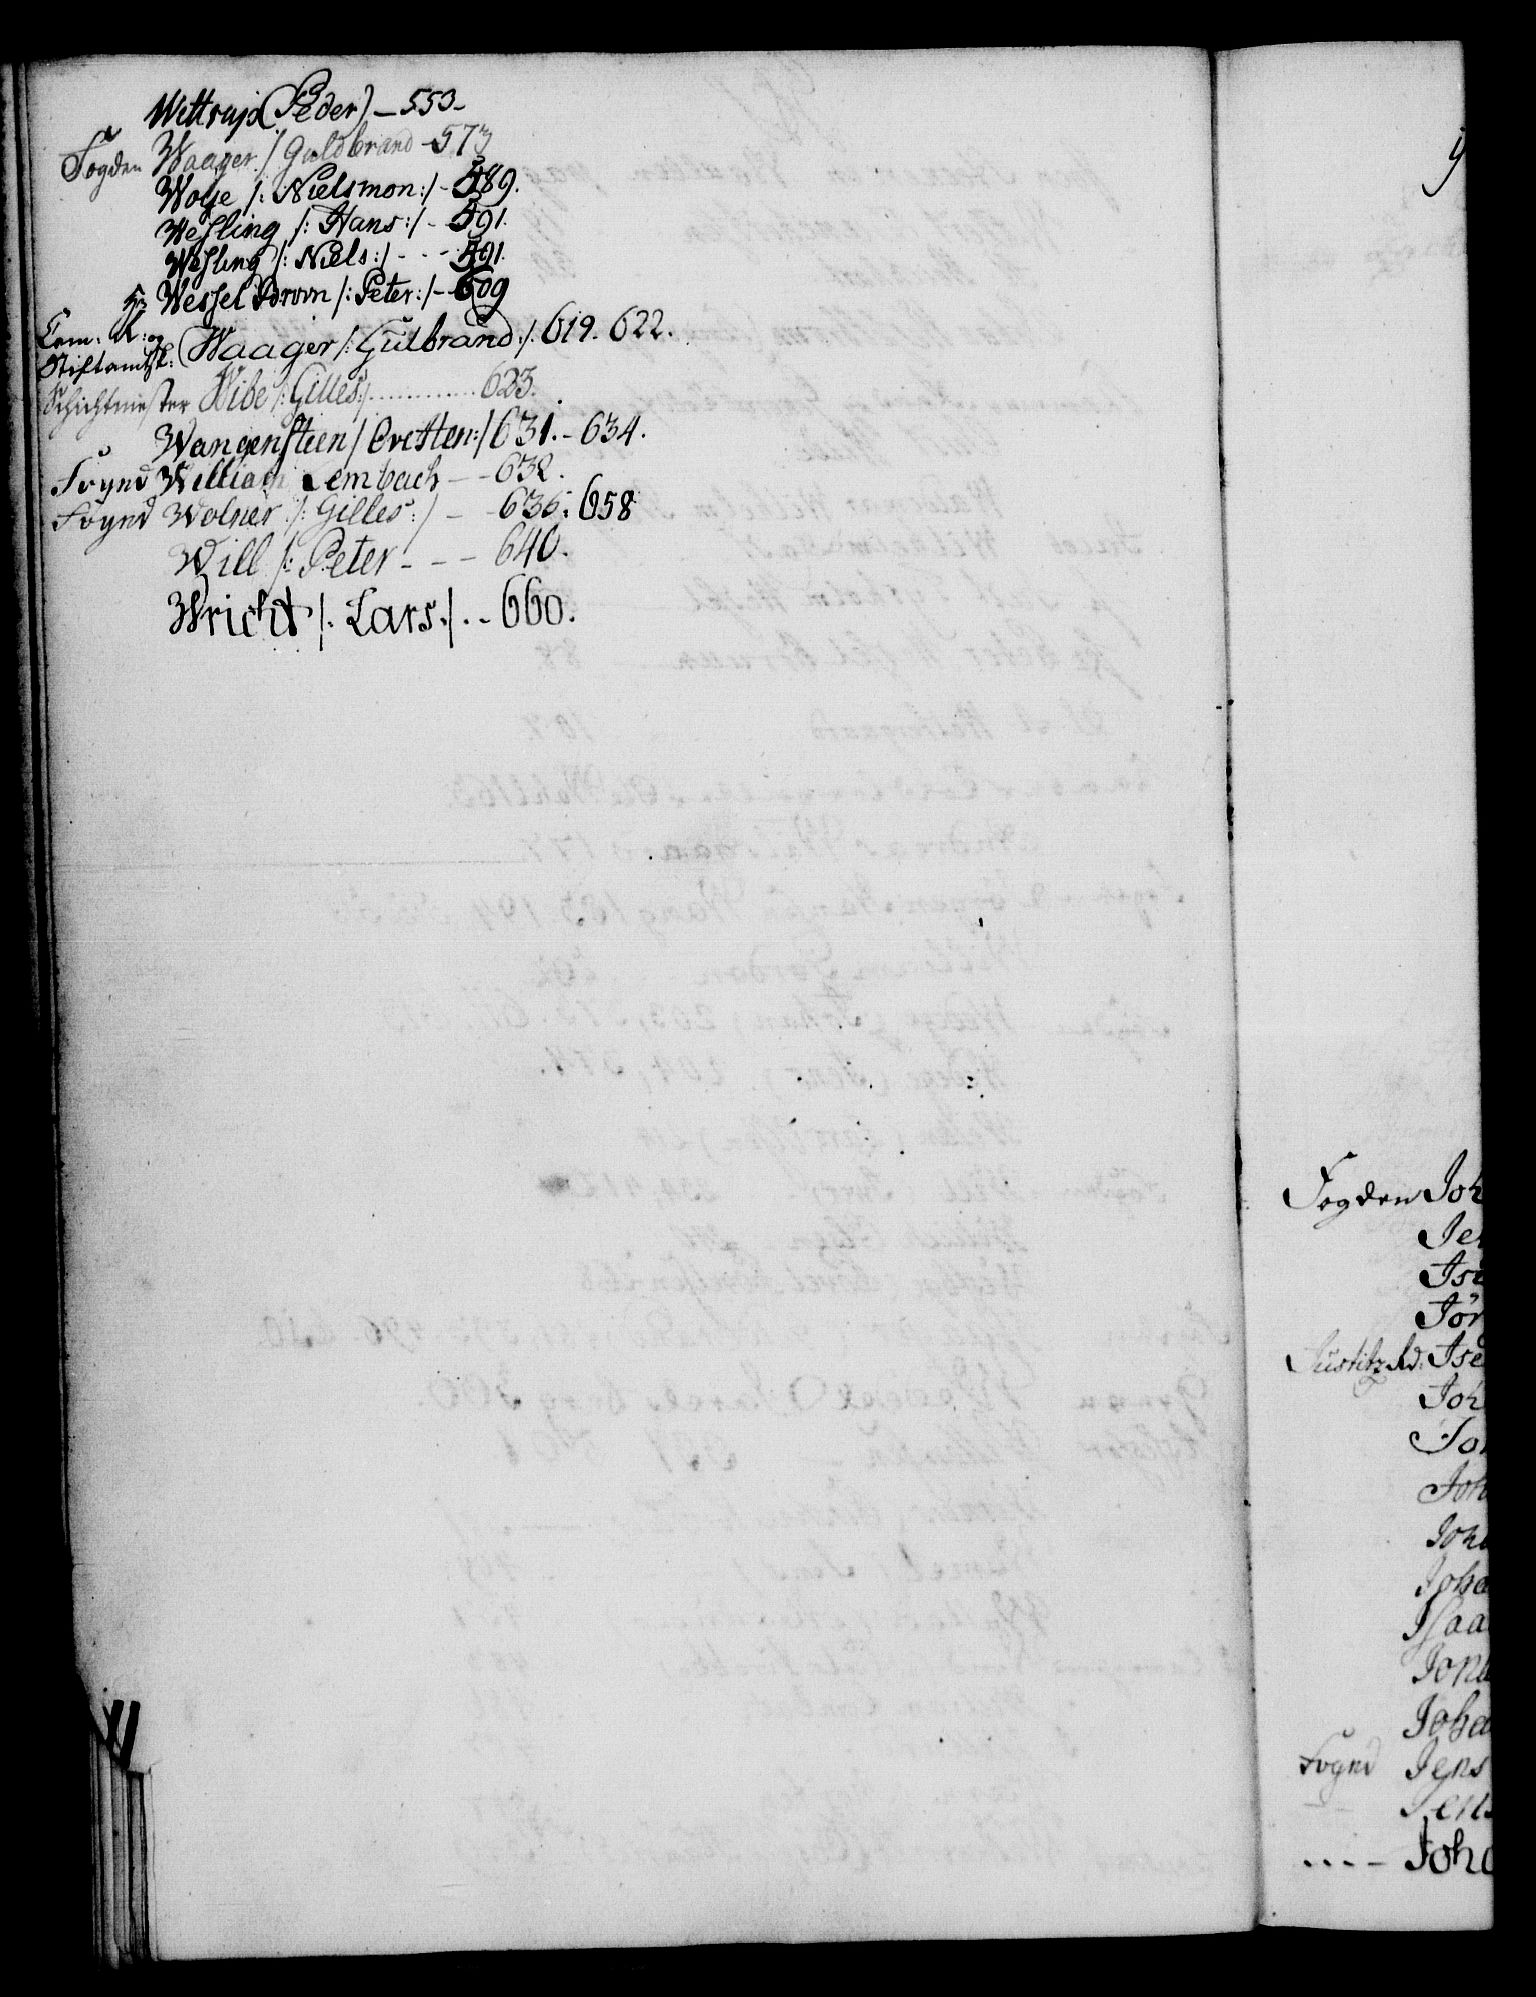 Wettrup (Peder) — 553 -
Fogden Waager /: Guldbrand - 573
Woye /: Nielsmon :/ - 589.
Wesling /: Hans :/ - - 591.
Wesling /: Niels :/ - - - 591.
Hr Wessel Brovn /: Peter :/ - - 609
Cam: R: og
Stiftamtsk: (Waager /: Gulbrand :/. 619. 622.
Schichtmester Wibe /: Gilles :/ ............ 623.
Wangensteen / Ovetten :/ 631. - 634.
Fogend William Lembach - - 632.
Fogend Wolner /: Gilles :/ - - 636. 658
Will /: Peter - - - 640.
Wricht /: Lars :/ . - 660.
Fogden Joh
Jen
Ise
Jör
Justitz Rd: Ise
Joh
Joh
Joh
Joha
Joha
Isaa
Jona
Joha
Fogend Jens
- - Jens
. . . - Joha